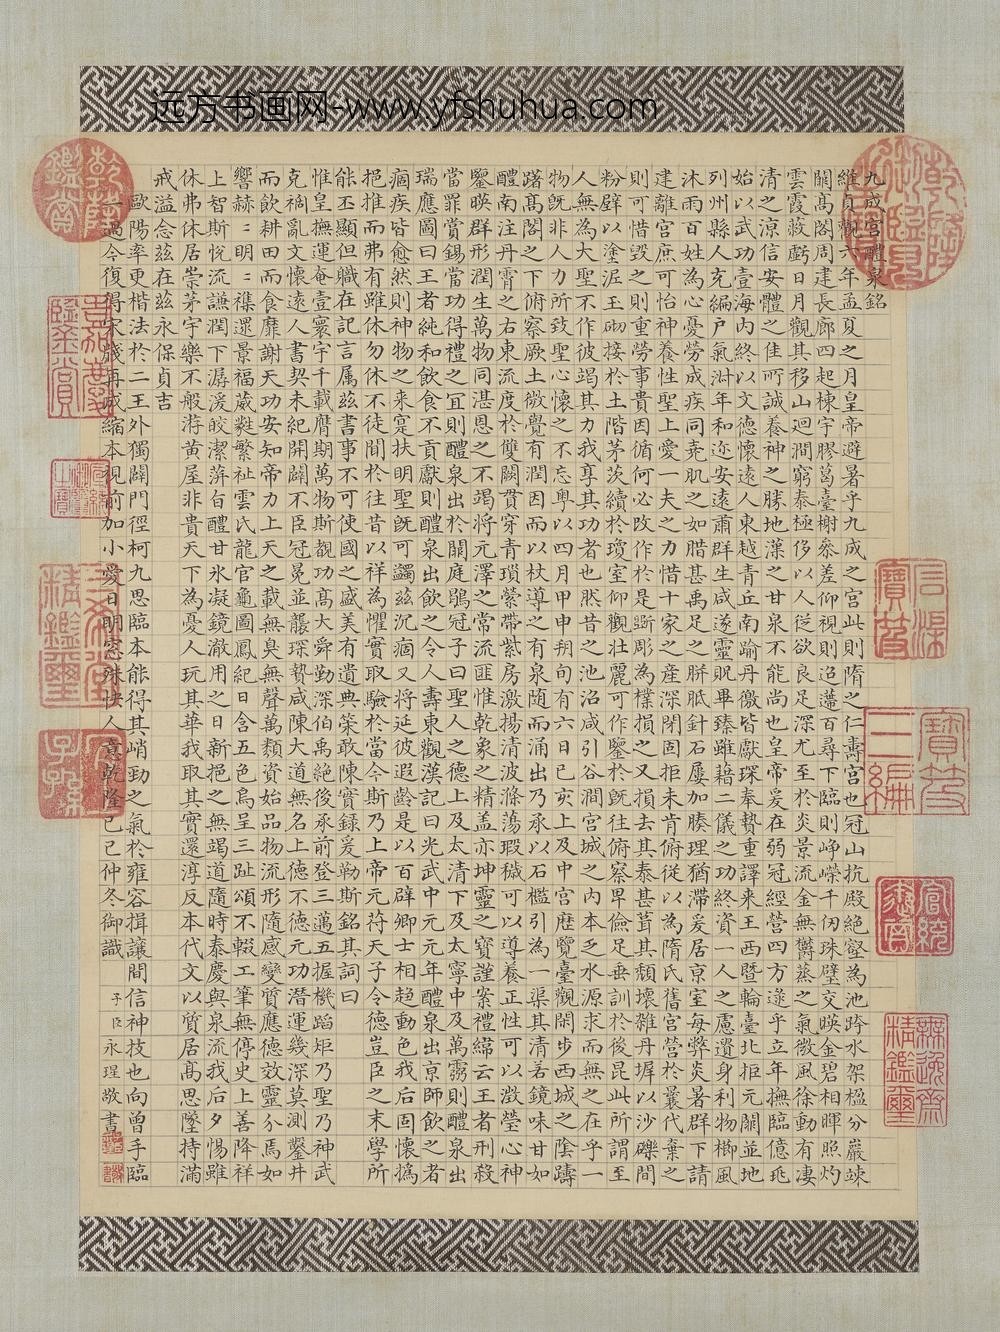 九成宮醴泉銘
維貞觀六年孟夏之月皇帝避暑乎九成之宮此則隋之仁壽宮也冠山抗殿絕壑為池跨水架楹分巖竦
闕高閣周建長廊四起棟宇膠葛臺榭參差仰視則迢遰百尋下臨則崢嶸千仞珠璧交暎金碧相暉照灼
雲霞蔽虧日月觀其移山迴澗窮泰極侈以人從欲良足深尤至於炎景流金無鬱蒸之氣微風徐動有凄
清之涼信安體之佳所誠養神之勝地漢之甘泉不能尚也皇帝爰在弱冠經營四方逮乎立年撫臨億兆
始以武功壹海內終以文德懷遠人東越青丘南踰丹徼皆獻琛奉贄重譯來王西暨輪臺北拒元闕並地
列州縣人充編戶氣淑年和迩安遠肅群生咸遂靈貺畢臻雖藉二儀之功終資一人之慮遺身利物櫛風
沐雨百姓為心憂勞成疾同堯肌之如腊甚禹足之胼胝針石屢加腠理猶滯爰居京室每弊炎暑群下請
建離宮庶可怡神養性聖上愛一夫之力惜十家之產深閉固拒未肯俯從以為隋氏舊宮營於曩代棄之
則可惜毀之則重勞事貴因循何必改作於是斲彫為樸損之又損去其泰甚葺其頹壞雜丹墀以沙礫間
粉壁以塗泥玉砌接於土階茅茨續於瓊室仰觀壯麗可作鑒於既往俯察卑儉足垂訓於後昆此所謂至
人無為大聖不作彼竭其力我享其功者也然昔之池沼咸引谷澗宮城之內本乏水源求而無之在乎一
物既非人力所致聖心懷之不忘粵以四月甲申朔旬有六日己亥上及中宮歷覽臺觀閑步西城之陰躊
躇高閣之下俯察厥土微覺有潤因而以杖導之有泉随而涌出乃承以石檻引為一渠其清若鏡味甘如
醴南注丹霄之右東流度於雙闕貫穿青瑣縈帶紫房激揚清波滌蕩瑕穢可以導養正性可以瀓瑩心神
鑒暎群形潤生萬物同湛恩之不竭將元澤之常流匪惟乾象之精盖亦坤靈之寶謹案禮緯云王者刑殺
當罪賞錫當功得禮之宜則醴泉出於闕庭鶡冠子曰聖人之德上及太清下及太寧中及萬靈則醴泉出
瑞應圖曰王者純和飲食不貢獻則醴泉出飲之令人壽東觀漢記曰光武中元元年醴泉出京師飲之者
痼疾皆愈然則神物之來寔扶明聖既可蠲茲沉痼又將延彼遐齡是以百辟卿士相趨動色我后固懷撝
挹推而弗有雖休勿休不徒聞於往昔以祥為懼實取驗於當今斯乃上帝元符天子令德豈臣之末學所
能丕顯但職在記言属茲書事不可使國之盛美有遺典策敢陳實錄爰勒斯銘其詞曰
惟皇撫運奄壹寰宇千載膺期萬物斯覩功高大舜勤深伯禹絕後承前登三邁五握機蹈矩乃聖乃神武
克禍亂文懷遠人書契未紀開闢不臣冠冕並襲琛贄咸陳大道無名上德不德元功潛運幾深莫測鑿井
而飲耕田而食靡謝天功安知帝力上天之載無臭無聲萬類資始品物流形隨感變質應德效靈介焉如
響赫二明二雜遝景福葳蕤繁祉雲氏龍官龜圖鳳紀日含五色烏呈三趾頌不輟工筆無停史上善降祥
上智斯悅流謙潤下潺湲皎潔蓱旨醴甘氷凝鏡澈用之日新挹之無竭道隨時泰慶與泉流我后夕惕雖
休弗休居崇茅宇樂不般游黃屋非貴天下為憂人玩其華我取其實還淳反本代文以質居高思墜持滿
戒溢念茲在茲永保貞吉
歐陽率更楷法於二王外獨闢門徑柯九思臨本能得其峭勁之氣於雍容揖讓間信神技也向曾手臨
一過今復得宋牋再成縮本視前加小愛日明窓殊快人意乾隆己巳仲冬御識
子臣永瑆敬書
乾隆鑑賞
三希堂精鑑璽
宜子孫
石渠寶笈
無逸齋精鑑璽
远方书画网-www.yfshuhua.com